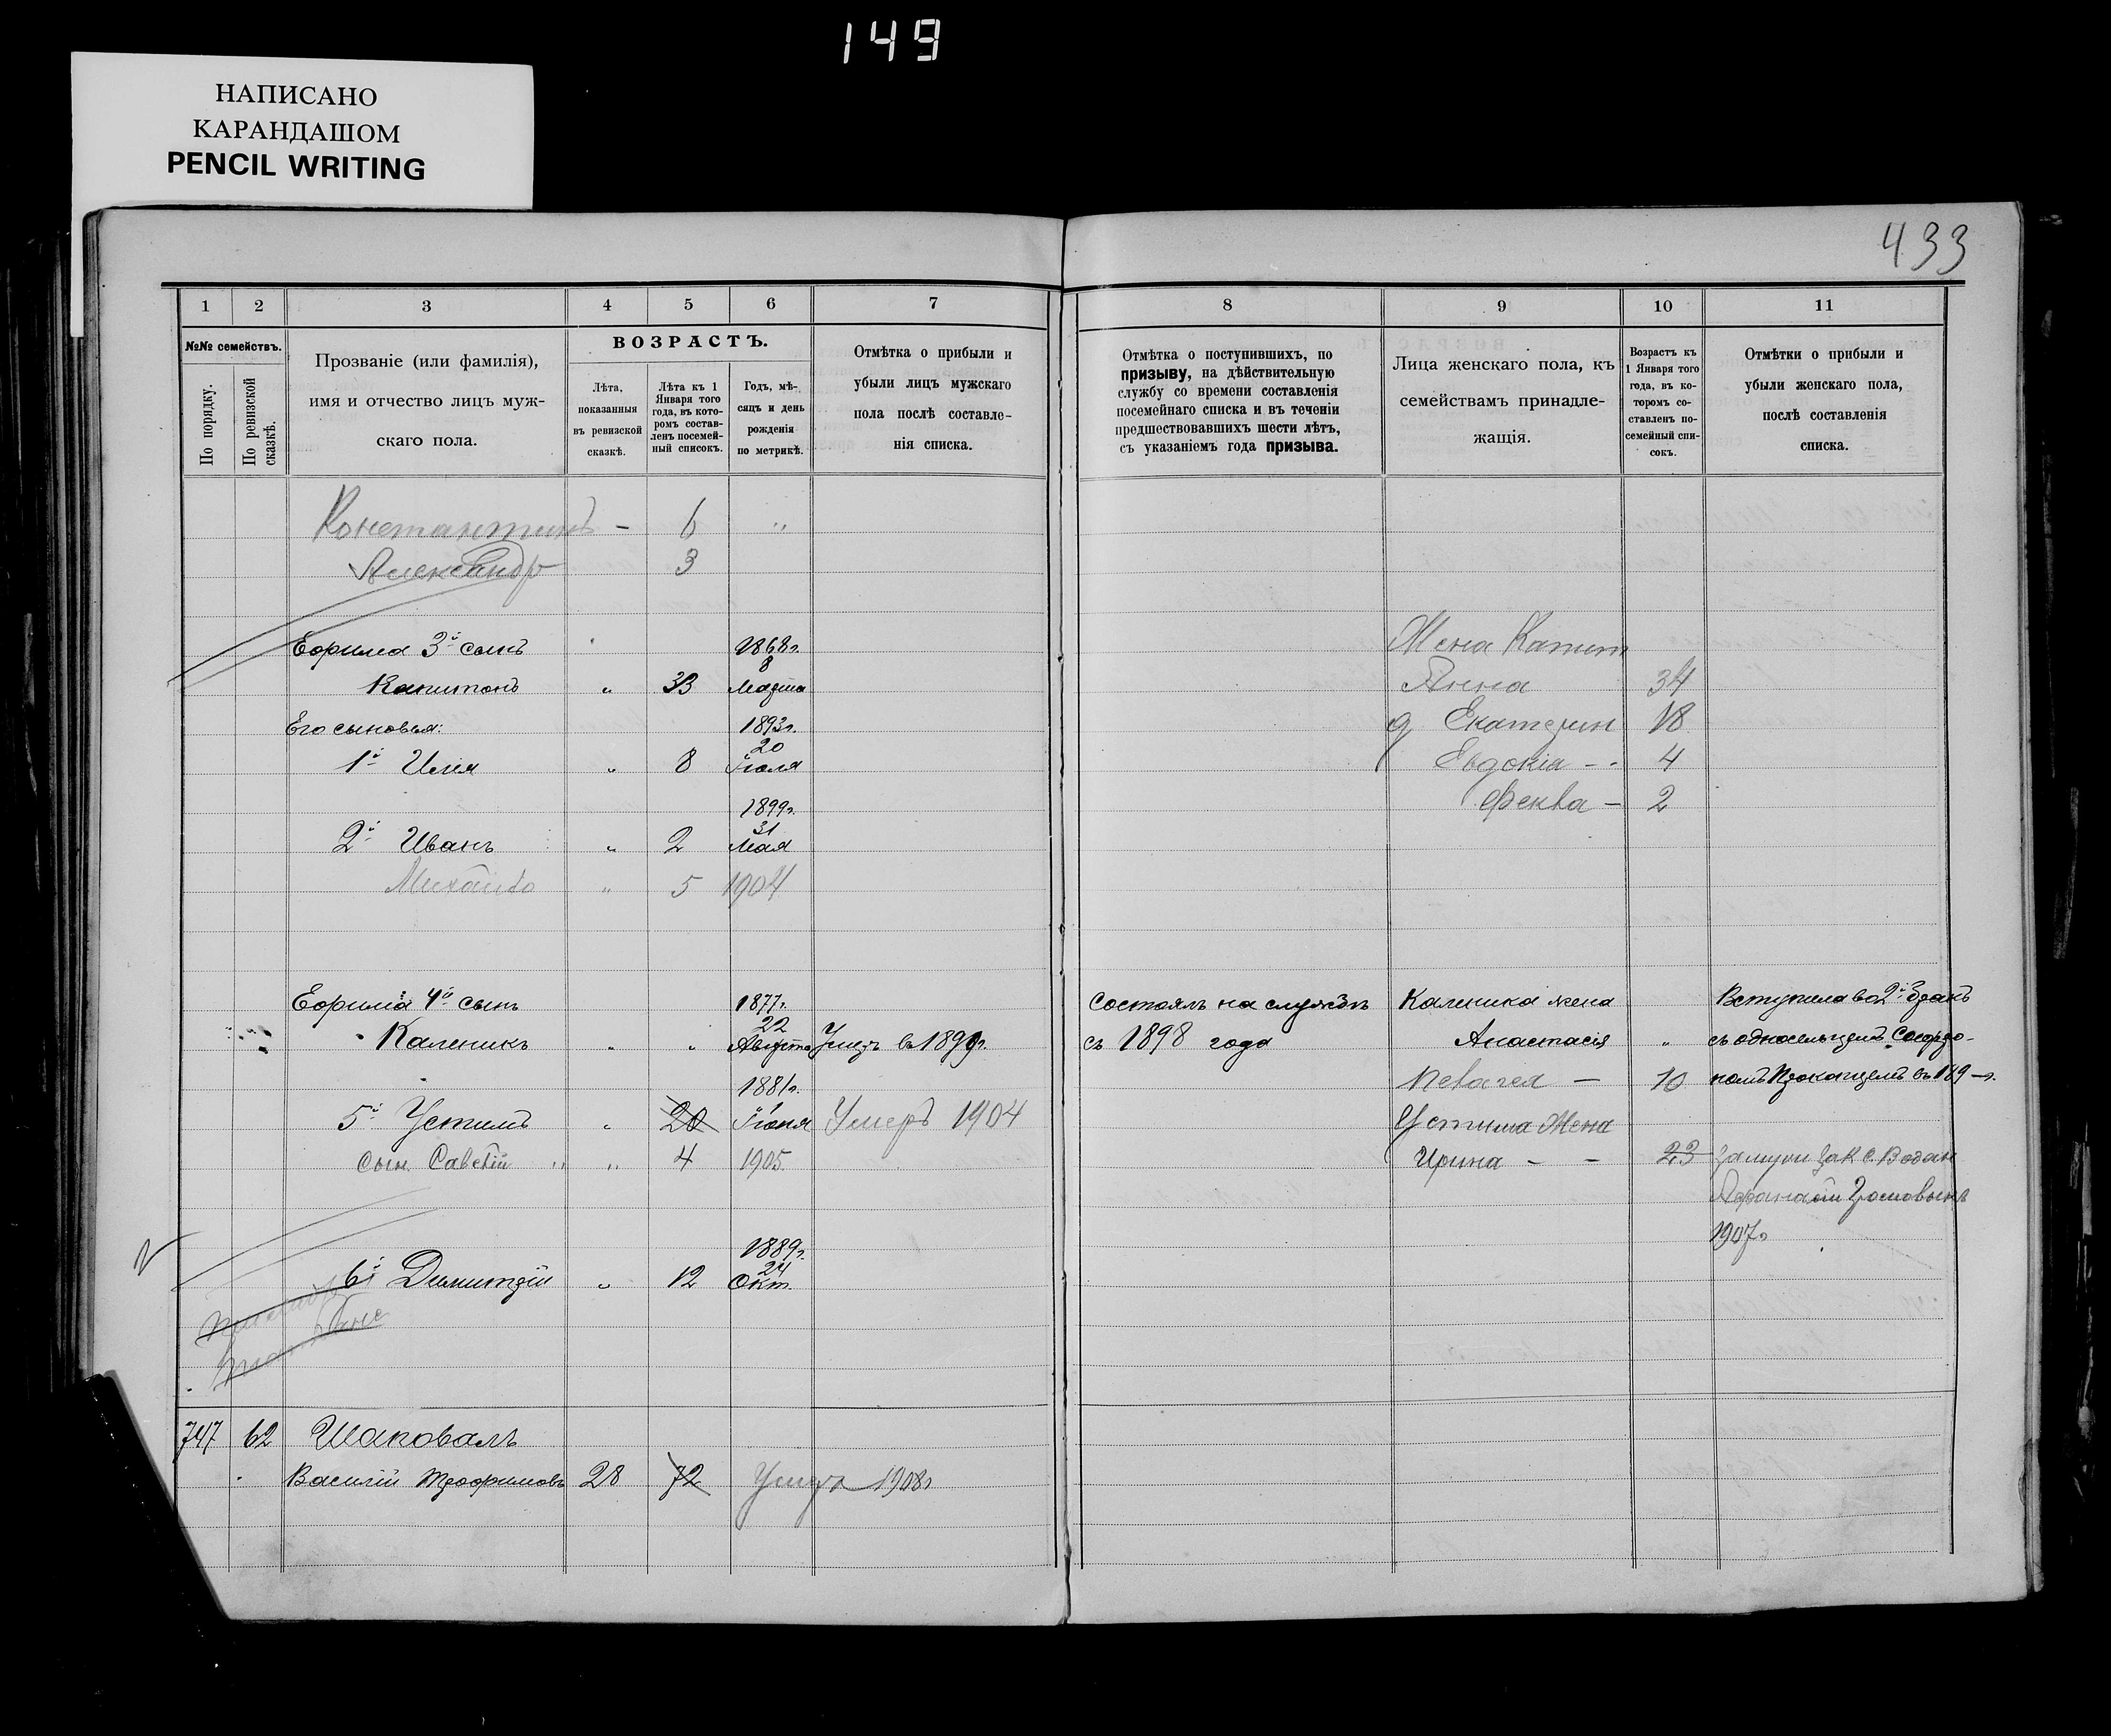 149
НАПИСАНО
КАРАНДАШОМ
PENCIL WRITING
433
1 2 3 4 5 6 7
№№ семействъ.
По порядку.
По ревизской сказкѣ.
Прозваніе (или фамилія),
имя и отчество лицъ муж-
скаго пола.
ВОЗРАСТЪ.
Лѣта,
показанныя
въ ревизской
сказкѣ.
Лѣта къ 1
Января того
года, въ кото-
ромъ состав-
ленъ посемей-
ный списокъ.
Годъ, мѣ-
сяцъ и день
рожденія
по метрикѣ.
Отмѣтка о прибыли и
убыли лицъ мужскаго
пола послѣ составле-
нія списка.
8 9 10 11
Отмѣтка о поступившихъ, по
призыву, на дѣйствительную
службу со времени составленія
посемейнаго списка и въ теченіи
предшествовавшихъ шести лѣтъ,
съ указаніемъ года призыва.
Лица женскаго пола, къ
семействамъ принадле-
жащія.
Возрастъ къ
1 Января того
года, въ ко-
торомъ со-
ставленъ по-
семейный спи-
сокъ.
Отмѣтки о прибыли и
убыли женскаго пола,
послѣ составленія
списка.
Константинъ - 6 "
Александр 3
Ефима 3й сынъ 1868г.
8
Капитонъ " 33 Марта
Его сыновья: 1893г.
20
1й Илія " 8 Іюля
1899г.
31
2й Иванъ " 2 Мая
Михаилъ " 5 1904
Ефима 4й сынъ 1877г.
22
Каленикъ " " Августа Умеръ въ 1899г.
1881г.
1
5й Устимъ " 20 Іюня Умеръ 1904
сын. Савелій " " 4 1905
1889г.
24
6й Димитрій " 12 Окт.
747 62 Шаповалъ
Василій Трофимовъ 28 72 Умеръ 1908г
Жена Капит
Анна 34
д Екатерин 18
Евдокія - - 4
Фекла - 2
Состоялъ на службѣ Каленика жена Вступила во 2й бракъ
съ 1898 года Анастасія " съ односельцемъ
Пелагея - 10 въ 189 - г.
Устима Жена
Ирина - - 23 замужи за к с. Водян
1907г